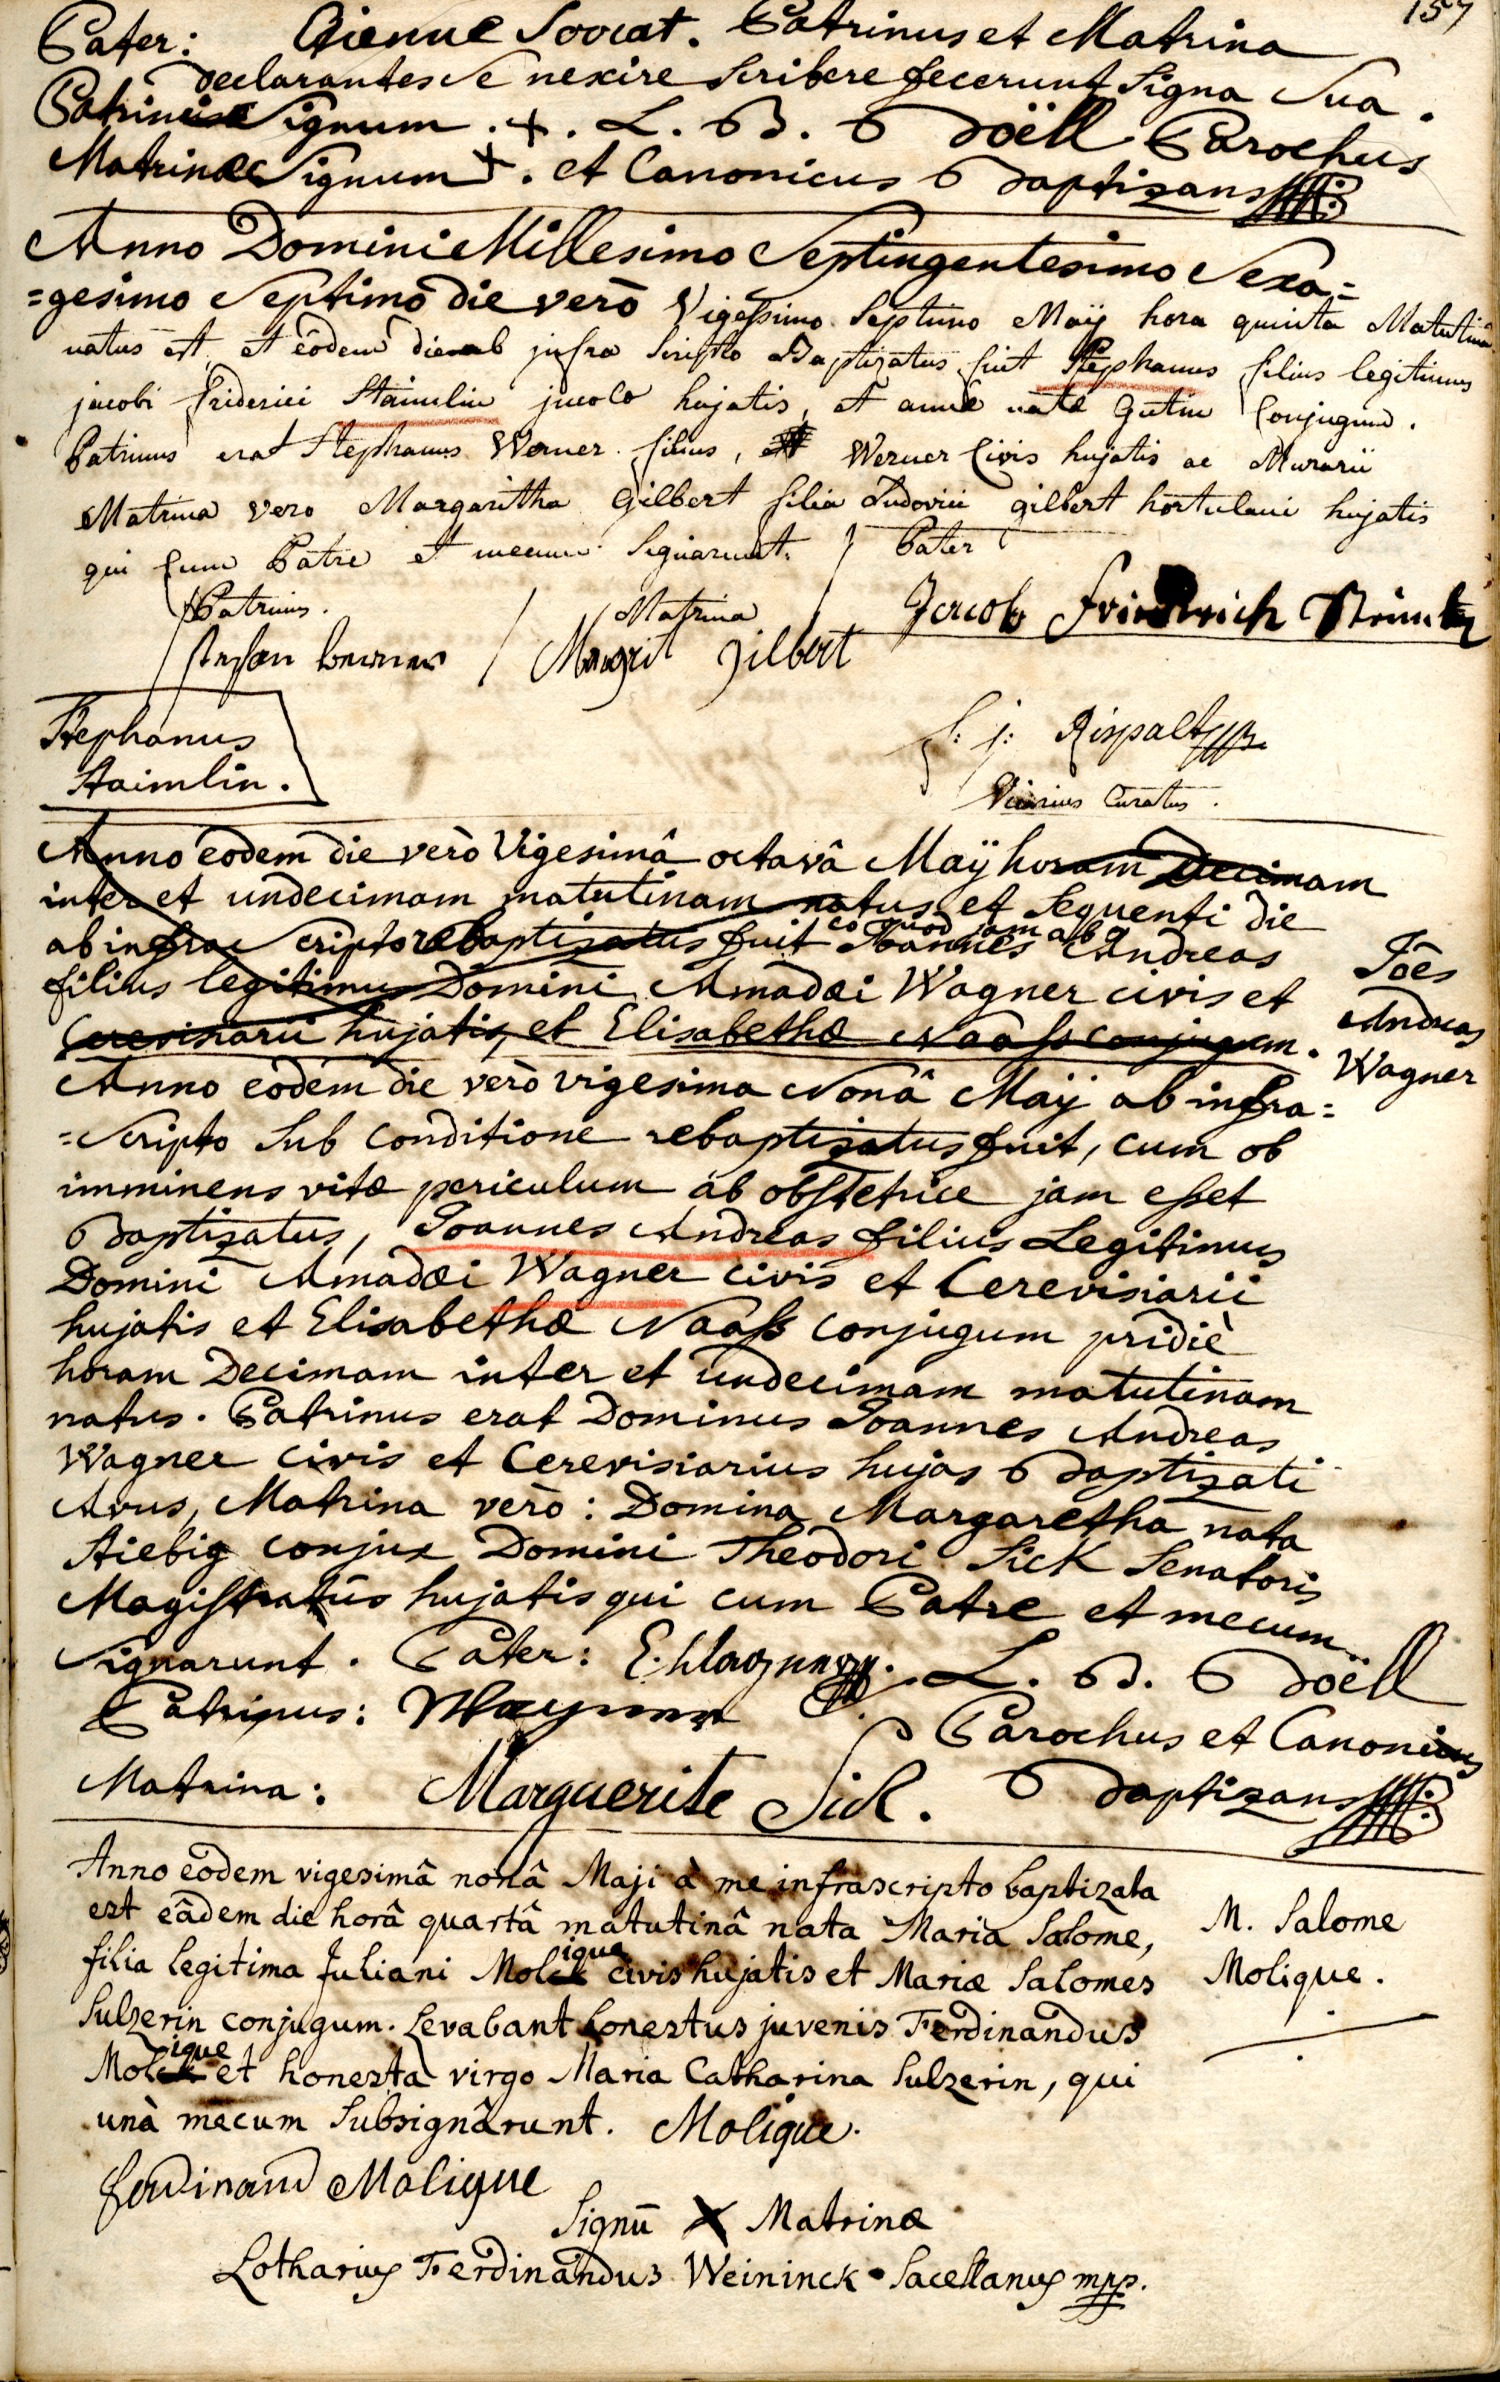 157
Pater: Etienne Sovrat. Patrinus et Matrina
declarantes se nescire scribere fecerunt signa sua.
Patrini signum . + . L. B. Boëll Parochus
Matrinae signum + . et Canonicus baptizans
Anno Domini Millesimo Septingentesimo Sexa=
=gesimo Septimo die verò Vigessimo Septimo Maÿ hora quinta Matutina
natus est et eodem die ab infra scripto Baptizatus fuit Stephanus filius legitimus
jacobi friderici Staimlin incolae hujatis, et annae natae Conjugum.
Patrinus erat Stephanus Werner filius, Werner Civis hujatis ac Murarii
Matrina vero Margaritha Gilbert filia Ludovici gilbert hortulani hujatis
qui Cum Patre et mecum signarunt. Pater
Patrinus. Matrina Jacob Friedrich
Margrit gilbert
Stephanus
Staimlin.
Rispalt
Vicarius Curatus.
Anno eodem die verò Vigesimâ octavâ Maÿ horam Decimam
inter et undecimam matutinam natus et sequenti die
eo quod jam ab
ab infra scripto rebaptizatus fuit Joannes Andreas
filius legitimus Domini Amadæi Wagner civis et
Cerevisiarii hujatis, et Elisabethæ Naass conjugum.
Joēs
Andreas
Wagner
Anno eodem die verò vigesima Nonâ Maÿ ab infra=
=scripto sub conditione rebaptizatus fuit, cum ob
imminens vitæ periculum ab obstetrice jam esset
Baptizatus, Joannes Andreas filius Legitimus
Domini Amadæi Wagner civis et Cerevisiarii
hujatis et Elisabethæ Naass conjugum pridiè
horam Decimam inter et undecimam matutinam
natus. Patrinus erat Dominus Joannes Andreas
Wagner civis et Cerevisiarius hujas Baptizati
Avus, Matrina verò: Domina Margaretha nata
Stiebig conjux Domini Theodori Sick Senatoris
Magistratûs hujatis qui cum Patre et mecum
signarunt. Pater: L. B. Boëll
Patrinus: Wagner Parochus et Canonicus
Matrina: Marguerite Sick. Baptizans
Anno eodem vigesimâ nonâ Maji à me infrascripto baptizata
est eâdem die horâ quartâ matutinâ nata Maria Salome,
filia legitima Juliani Molique civis hujatis et Mariæ Salomes
Sulzerin conjugum. Levabant honestus juvenis Ferdinandus
Molique et honesta virgo Maria Catharina Sulzerin, qui
unà mecum subsignârunt. Molique.
M. Salome
Molique.
ferdinand Molique
Signū X Matrinæ
Lotharius Ferdinandus Weininck Sacellanus mpp.